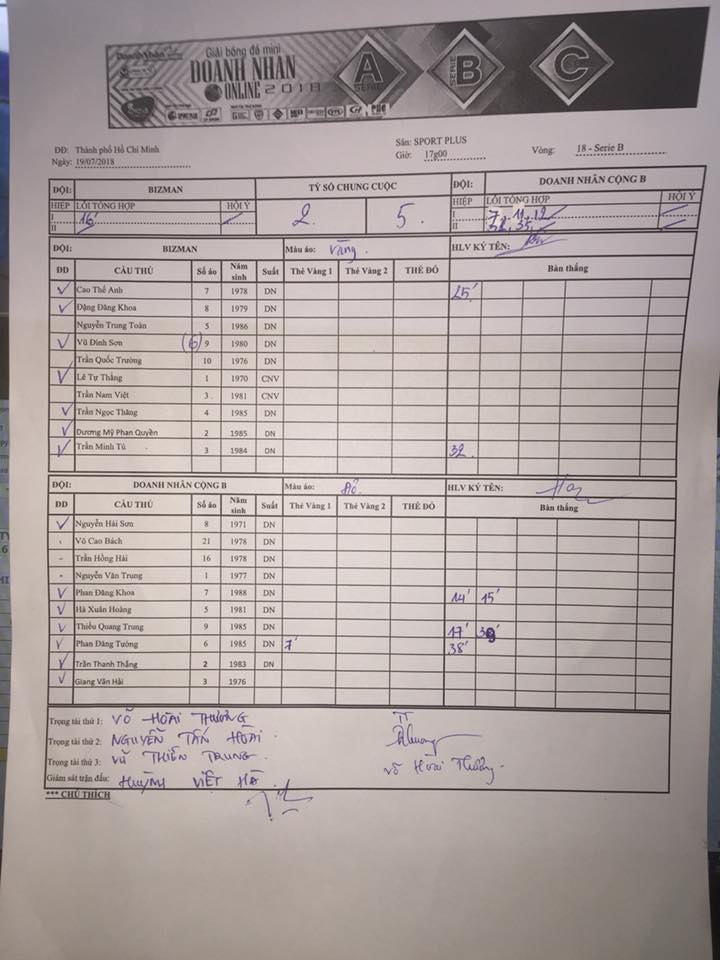 Doanh Nhân
Giải bóng đá mini
DOANH NHÂN
ONLINE 2018
A SERIE
SERIE B
SERIE C
ĐĐ: Thành phố Hồ Chí Minh Sân: SPORT PLUS
Ngày: 19/07/2018 Giờ: 17g00 Vòng: 18 - Serie B
ĐỘI: BIZMAN TỶ SỐ CHUNG CUỘC ĐỘI: DOANH NHÂN CỘNG B
HIỆP LỖI TỔNG HỢP HỘI Ý 2 5. HIỆP LỖI TỔNG HỢP HỘI Ý
I 16' I 7, 11, 12
II II 32, 35,
ĐỘI: BIZMAN Màu áo: Vàng. HLV KÝ TÊN:
ĐD CẦU THỦ Số áo Năm sinh Suất Thẻ Vàng 1 Thẻ Vàng 2 THẺ ĐỎ Bàn thắng
Cao Thế Anh 7 1978 DN 25'
Đặng Đăng Khoa 8 1979 DN
Nguyễn Trung Toàn 5 1986 DN
Vũ Đình Sơn (6) 9 1980 DN
Trần Quốc Trường 10 1976 DN
Lê Tự Thắng 1 1970 CNV
Trần Nam Việt 3 1981 CNV
Trần Ngọc Thăng 4 1985 DN
Dương Mỹ Phan Quyền 2 1985 DN
Trần Minh Tú 3 1984 DN 32
ĐỘI: DOANH NHÂN CỘNG B Màu áo: Đỏ. HLV KÝ TÊN:
ĐD CẦU THỦ Số áo Năm sinh Suất Thẻ Vàng 1 Thẻ Vàng 2 THẺ ĐỎ Bàn thắng
Nguyễn Hải Sơn 8 1971 DN
Võ Cao Bách 21 1978 DN
Trần Hồng Hải 16 1978 DN
Nguyễn Văn Trung 1 1977 DN
Phan Đăng Khoa 7 1988 DN 14' 15'
Hà Xuân Hoàng 5 1981 DN
Thiều Quang Trung 9 1985 DN 17' 39'
Phan Đăng Tường 6 1985 DN 7' 38'
Trần Thanh Thắng 2 1983 DN
Giang Văn Hải 3 1976
Trọng tài thứ 1: VÕ HOÀI THƯƠNG TT
Trọng tài thứ 2: NGUYỄN TẤN HOÀI
Trọng tài thứ 3: VŨ THIÊN TRUNG. Võ Hoài Thương
Giám sát trận đấu: HUỲNH VIỆT HÀ
*** CHÚ THÍCH